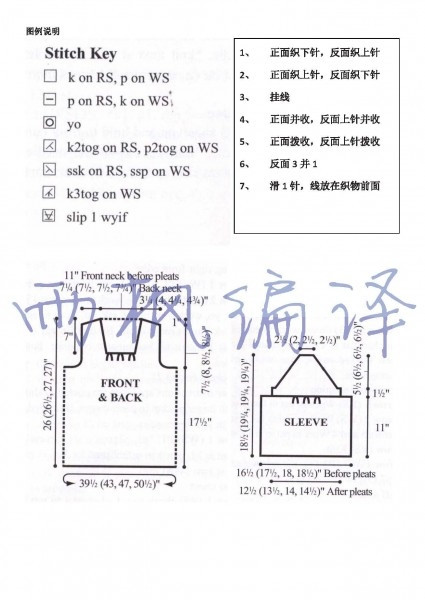 图例说明
Stitch Key
k on RS, p on WS
p on RS, k on WS
yo
k2tog on RS, p2tog on WS
ssk on RS, ssp on WS
k3tog on WS
slip 1 wyif
1、 正面织下针，反面织上针
2、 正面织上针，反面织下针
3、 挂线
4、 正面并收，反面上针并收
5、 正面拨收，反面上针拨收
6、 反面 3 并 1
7、 滑 1 针，线放在织物前面
雨枫编译
11" Front neck before pleats
7¼ (7½, 7½, 7¾)" Back neck
3¼ (4, 4¼, 4¾)"
1"
7"
7½ (8, 8½, 8½)"
FRONT
& BACK
26 (26½, 27, 27)"
17½"
39½ (43, 47, 50½)"
2½ (2, 2½, 2½)"
5½ (6½, 6½, 6½)"
1½"
SLEEVE
18½ (19¼, 19¼, 19¼)"
11"
16½ (17½, 18, 18½)" Before pleats
12½ (13½, 14, 14½)" After pleats